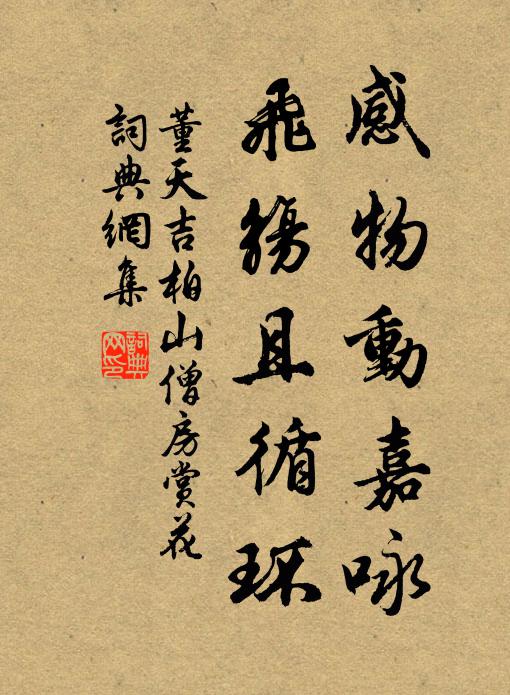 感物動嘉咏
飛觴且循环
董天吉柏山僧房賞花
詞典網集
詞典網印